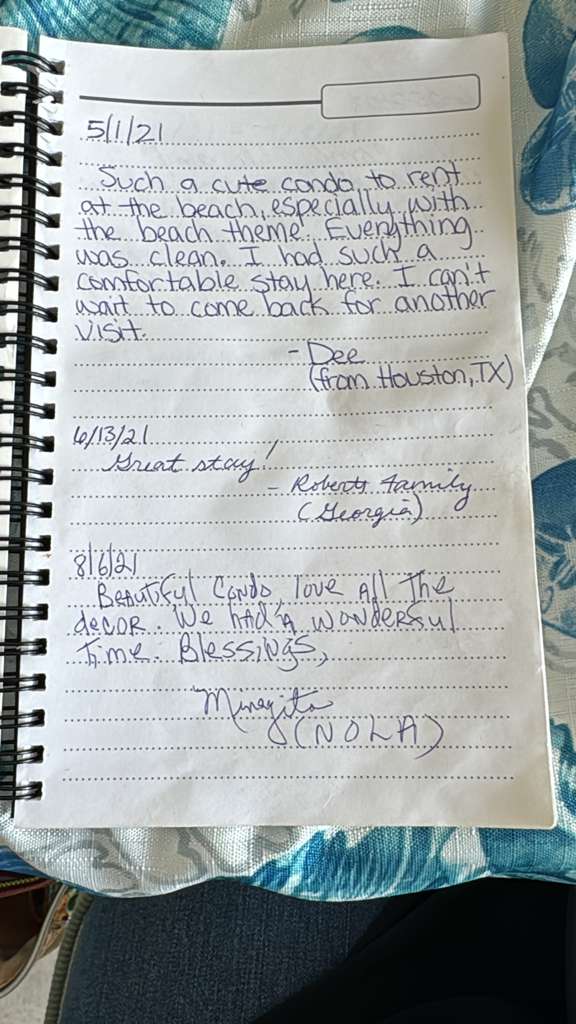 5/1/21
Such a cute condo to rent
at the beach, especially with
the beach theme. Everything
was clean. I had such a
comfortable stay here. I can't
wait to come back for another
visit.
- Dee
(from Houston, TX)
6/13/21
Great stay!
- Roberts family
(Georgia)
8/6/21
Beautiful Condo, love All The
decor. We had A wonderful
Time. Blessings,
(NOLA)